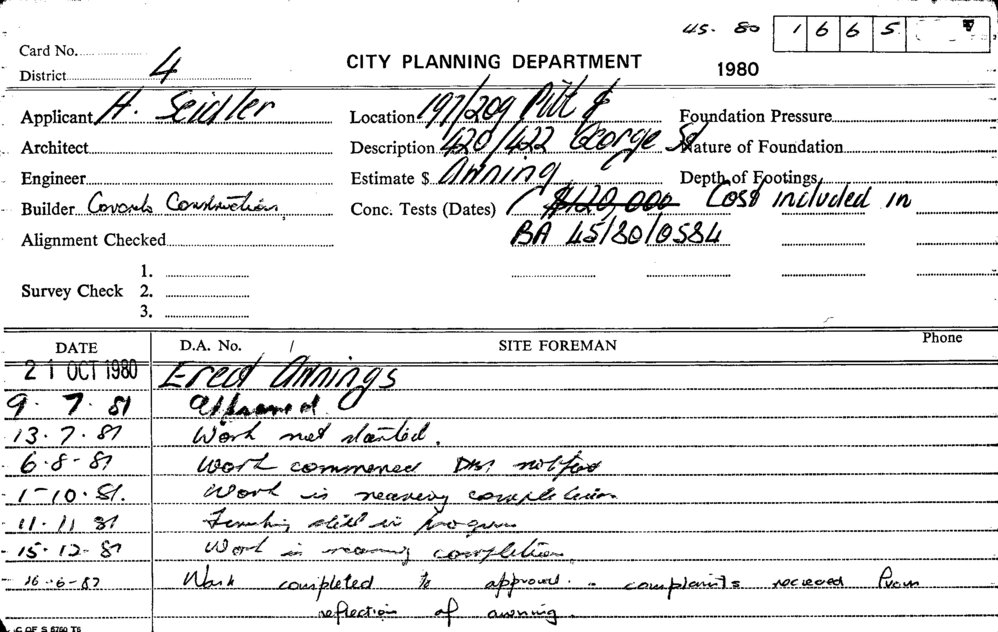 45. 80 1665
Card No.
District 4
CITY PLANNING DEPARTMENT
1980
Applicant H. Seidler
Location 197/209 Pitt &
Foundation Pressure
Architect
Description 420/422 George St
Nature of Foundation
Engineer
Estimate $ Awning
Depth of Footings
Builder Construction
Conc. Tests (Dates) ( $120,000 Cost included in
Alignment Checked
BA 45/80/0584
1.
Survey Check 2.
3.
DATE D.A. No. / SITE FOREMAN Phone
21 OCT 1980 Erect Awnings
9. 7. 81 Approved.
13. 7. 81 Work not started.
6. 8 - 81 Work commenced notified
1-10. 81. Work is nearing completion
11. 11 81 Finishing still in progress
- 15. 12- 81 Work is nearing completion
- 16 -6-82 Work completed to approval. - complaints recieved from
reflection of awning.
C OF S 6760 T5